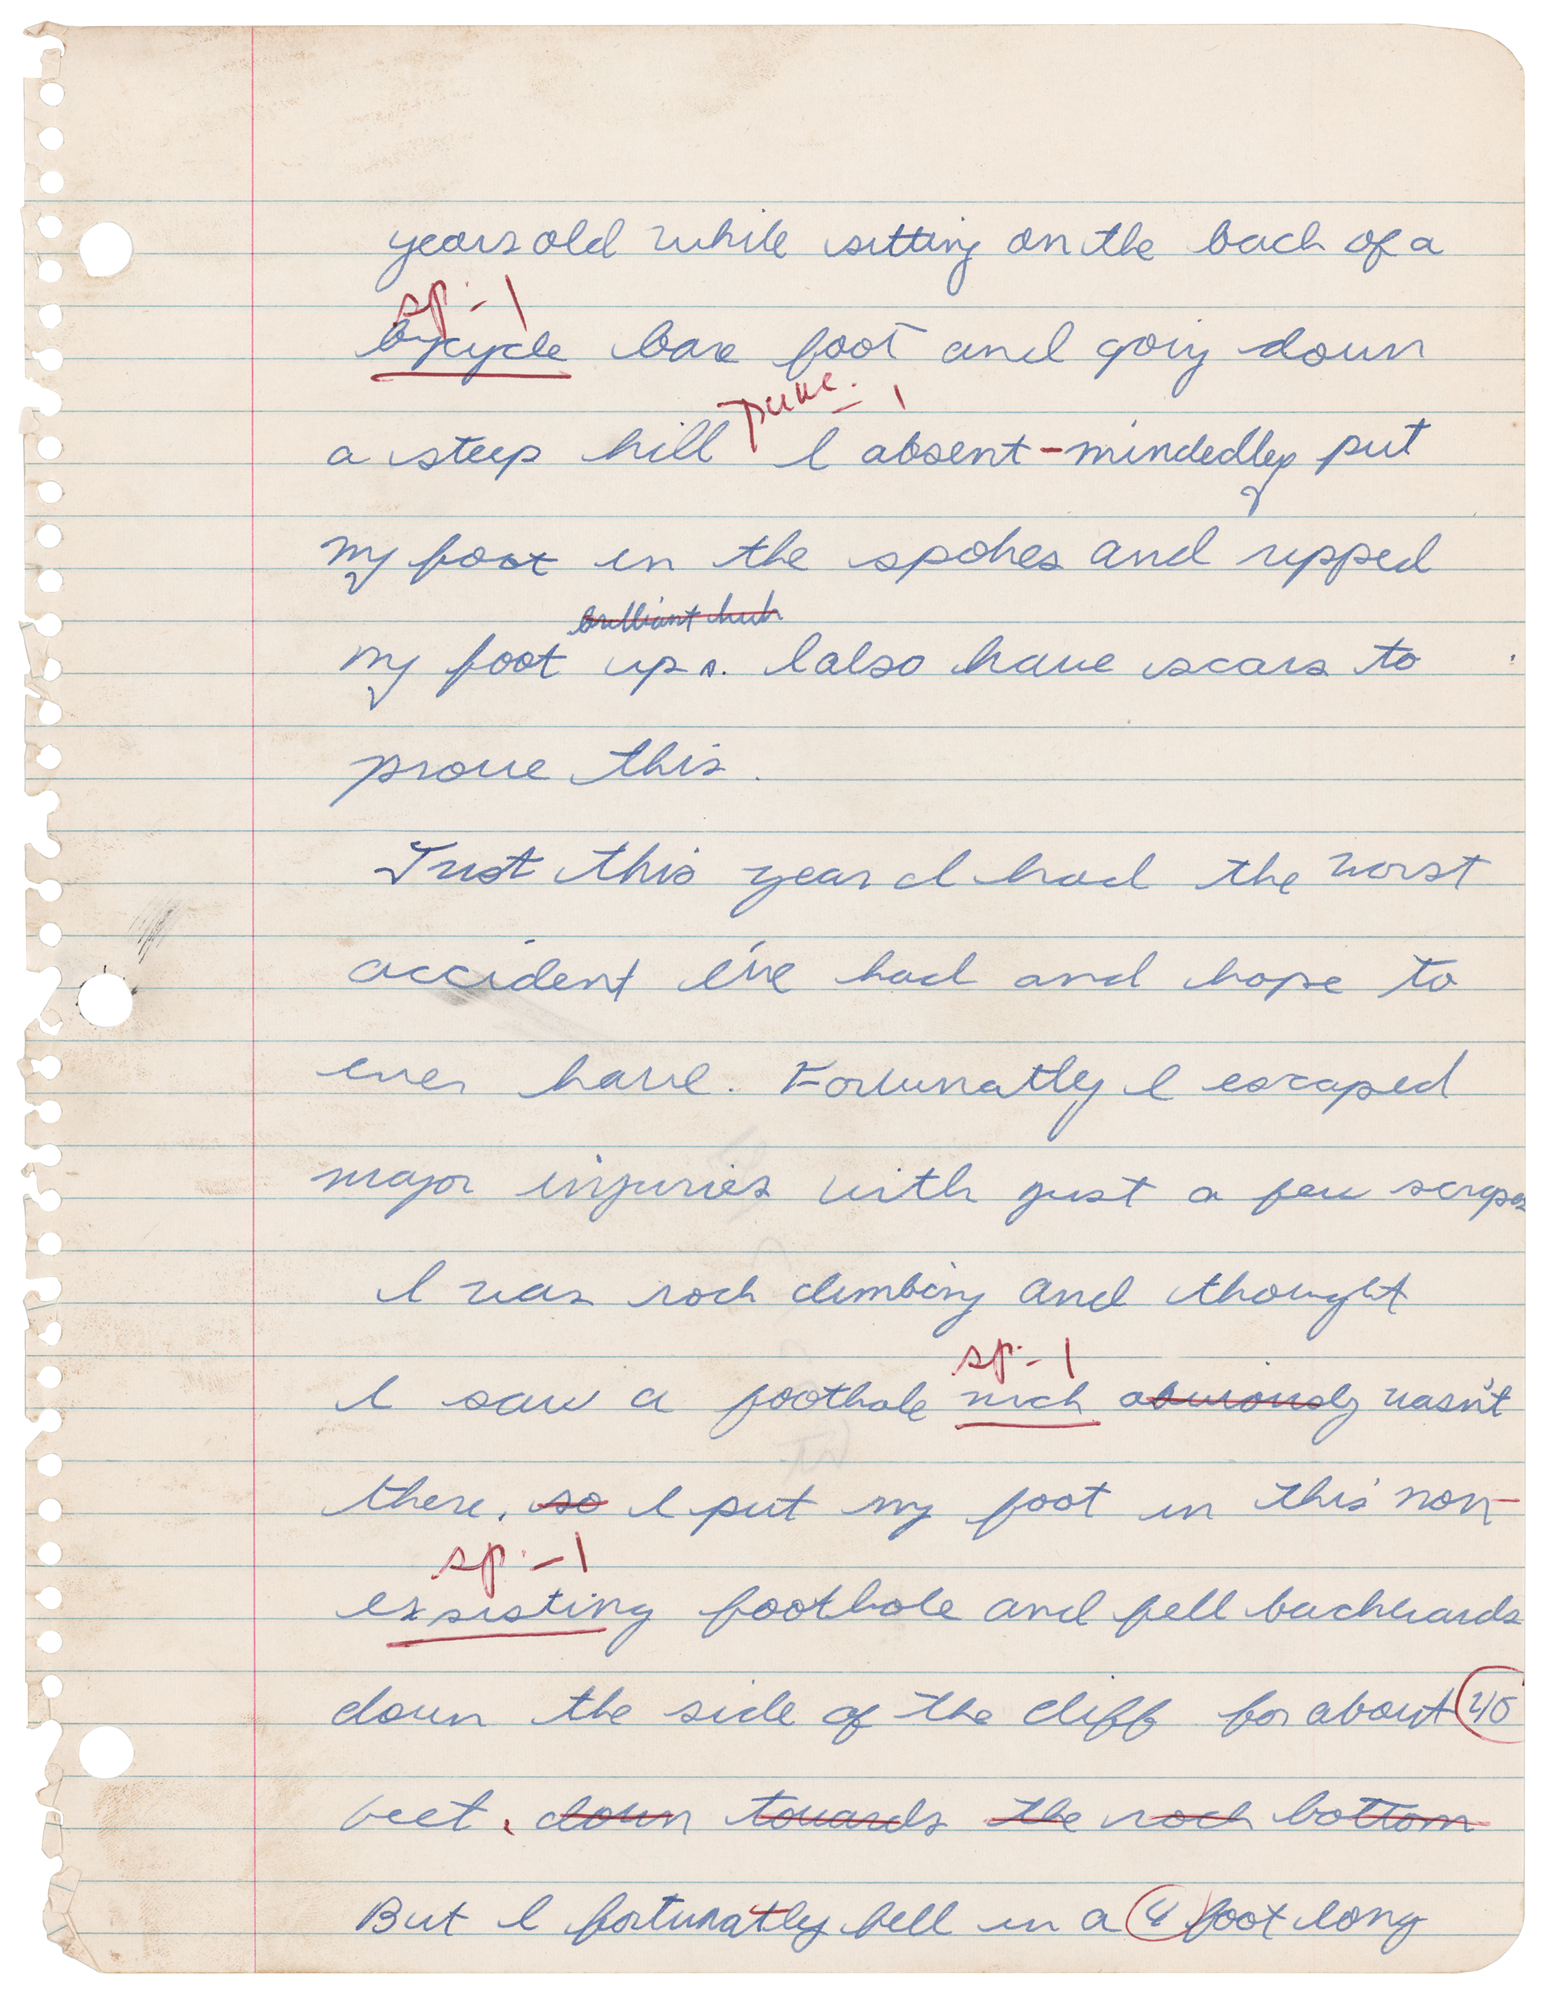 years old while sitting on the back of a
sp. -1
bycycle bare foot and going down
punc. -1
a steep hill I absent-mindedley put
my foot in the spokes and ripped
brilliant huh
my foot up. I also have scars to
prove this.
Just this year I had the worst
accident I've had and hope to
ever have. Fortunatly I escaped
major injuries with just a few scrapes
I was rock climbing and thought
sp. -1
I saw a foothole wich obviously wasn't
there. so I put my foot in this non-
sp. -1
exsisting foothole and fell backwards
down the side of the cliff for about 40
feet. down towards the rock bottom
But I fortunatly fell in a foot long